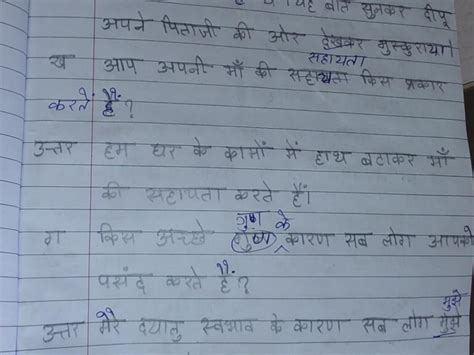 है । यह बात सुनकर दीपू
अपने पिताजी की ओर देखकर मुस्कुराया।
सहायता
ख आप अपनी माँ की सहायता किस प्रकार
करते हैं?
उत्तर हम घर के कामों में हाथ बटाकर माँ
की सहायता करते हैं।
गुण के
ग किस अच्छे गुण कारण सब लोग आपको
पसंद करते हैं?
मुझे
उत्तर मेरे दयालु स्वभाव के कारण सब लोग मुझे